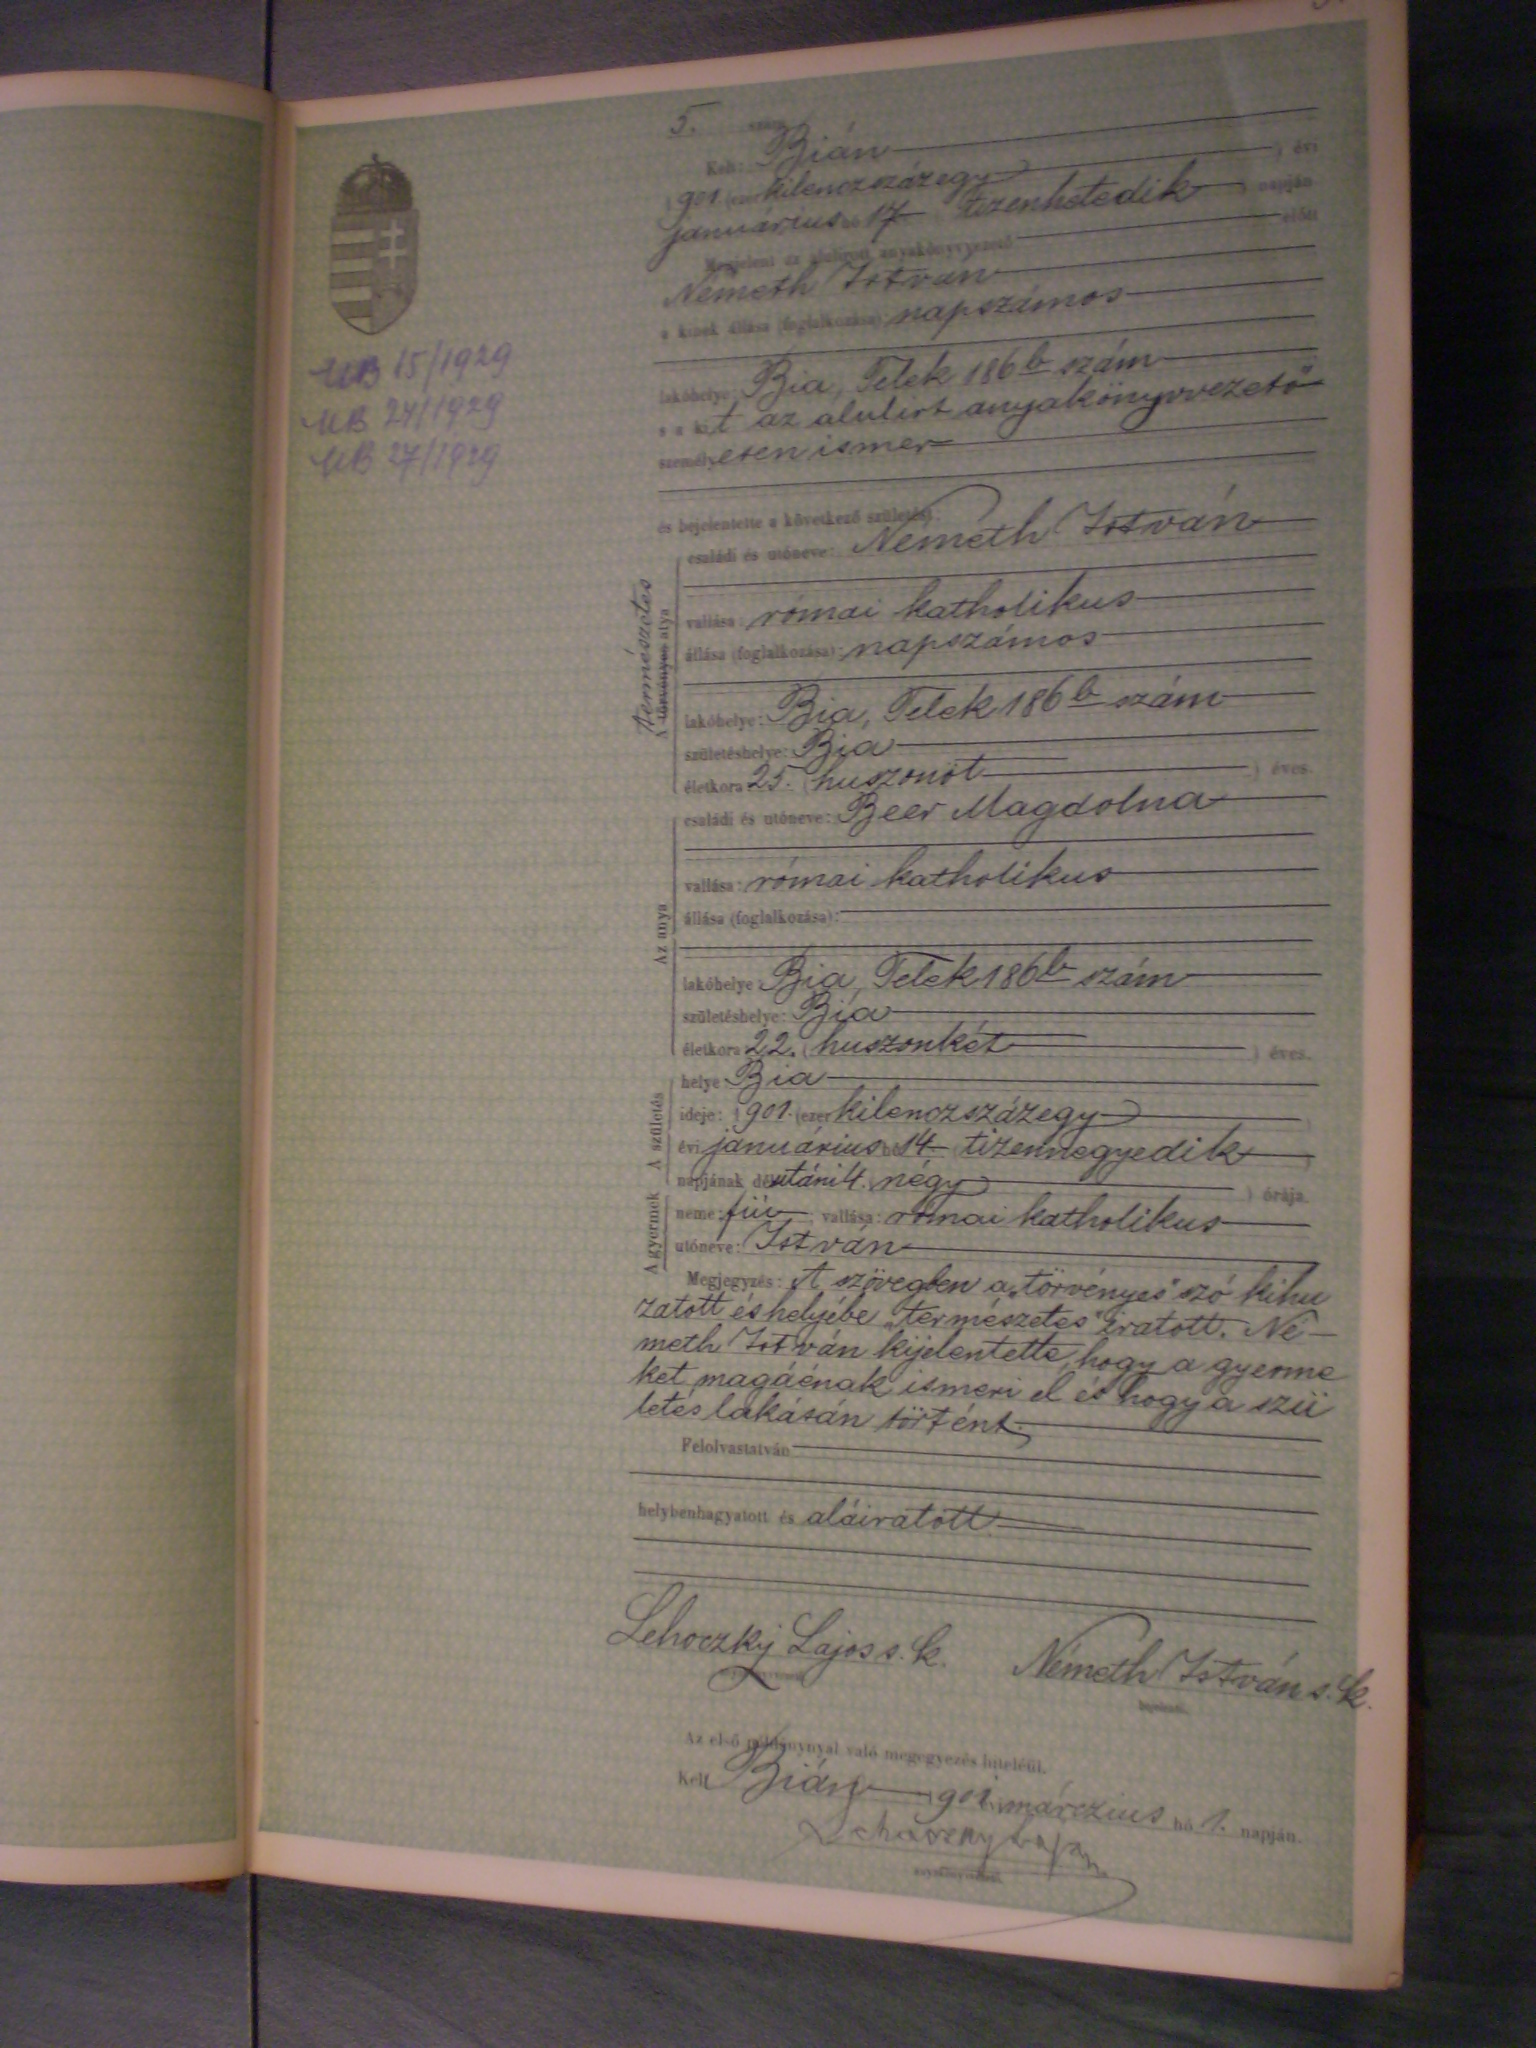 5. szám
Kelt: Bián
1901 (ezer kilenczszázegy) évi
januárius hó 17 (tizenhetedik) napján
Megjelent az alulírott anyakönyvvezető előtt
Németh István
a kinek állása (foglalkozása) napszámos
lakóhelye: Bia, Telek 186 b szám
s a kit az alulirt anyakönyvvezető
személyesen ismer
és bejelentette a következő születést.
családi és utóneve: Németh István
természetes
A törvényes atya
vallása: római katholikus
állása (foglalkozása): napszámos
lakóhelye: Bia, Telek 186 b szám
születéshelye: Bia
életkora 25. (huszonöt) éves.
Az anya
családi és utóneve: Beer Magdolna
vallása: római katholikus
állása (foglalkozása):
lakóhelye: Bia, Telek 186 b szám
születéshelye: Bia
életkora 22. (huszonkét) éves.
A születés
helye Bia
ideje: 1901. (ezer kilenczszázegy)
évi januárius hó 14 (tizennegyedik)
napjának délutáni 4. (négy) órája.
A gyermek
neme: fiú; vallása: római katholikus
utóneve: István
Megjegyzés: A szövegben a „törvényes" szó kihu
zatott és helyébe „természetes" iratott. Né-
meth István kijelentette, hogy a gyerme
ket magáénak ismeri el és hogy a szü
letés lakásán történt.
Felolvastatván
helybenhagyatott és aláiratott
Lehoczky Lajos s.k. Németh István s.k.
bejelentő.
Az első példánynyal való megegyezés hiteléül.
Kelt Bián 1901 márczius hó 1. napján.
Lehoczky Lajos
anyakönyvvezető.
UB 15/1929
UB 24/1929
UB 27/1929